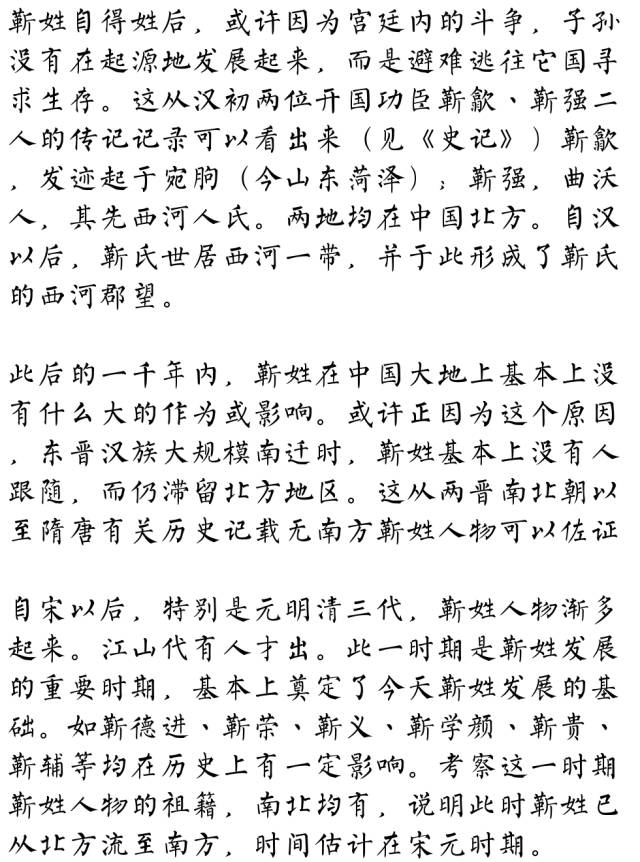 靳姓自得姓后，或许因为宫廷内的斗争，子孙
没有在起源地发展起来，而是避难逃往它国寻
求生存。这从汉初两位开国功臣靳歙、靳强二
人的传记记录可以看出来（见《史记》）靳歙
，发迹起于宛朐（今山东菏泽）；靳强，曲沃
人，其先西河人氏。两地均在中国北方。自汉
以后，靳氏世居西河一带，并于此形成了靳氏
的西河郡望。
此后的一千年内，靳姓在中国大地上基本上没
有什么大的作为或影响。或许正因为这个原因
，东晋汉族大规模南迁时，靳姓基本上没有人
跟随，而仍滞留北方地区。这从两晋南北朝以
至隋唐有关历史记载无南方靳姓人物可以佐证
自宋以后，特别是元明清三代，靳姓人物渐多
起来。江山代有人才出。此一时期是靳姓发展
的重要时期，基本上奠定了今天靳姓发展的基
础。如靳德进、靳荣、靳义、靳学颜、靳贵、
靳辅等均在历史上有一定影响。考察这一时期
靳姓人物的祖籍，南北均有，说明此时靳姓已
从北方流至南方，时间估计在宋元时期。